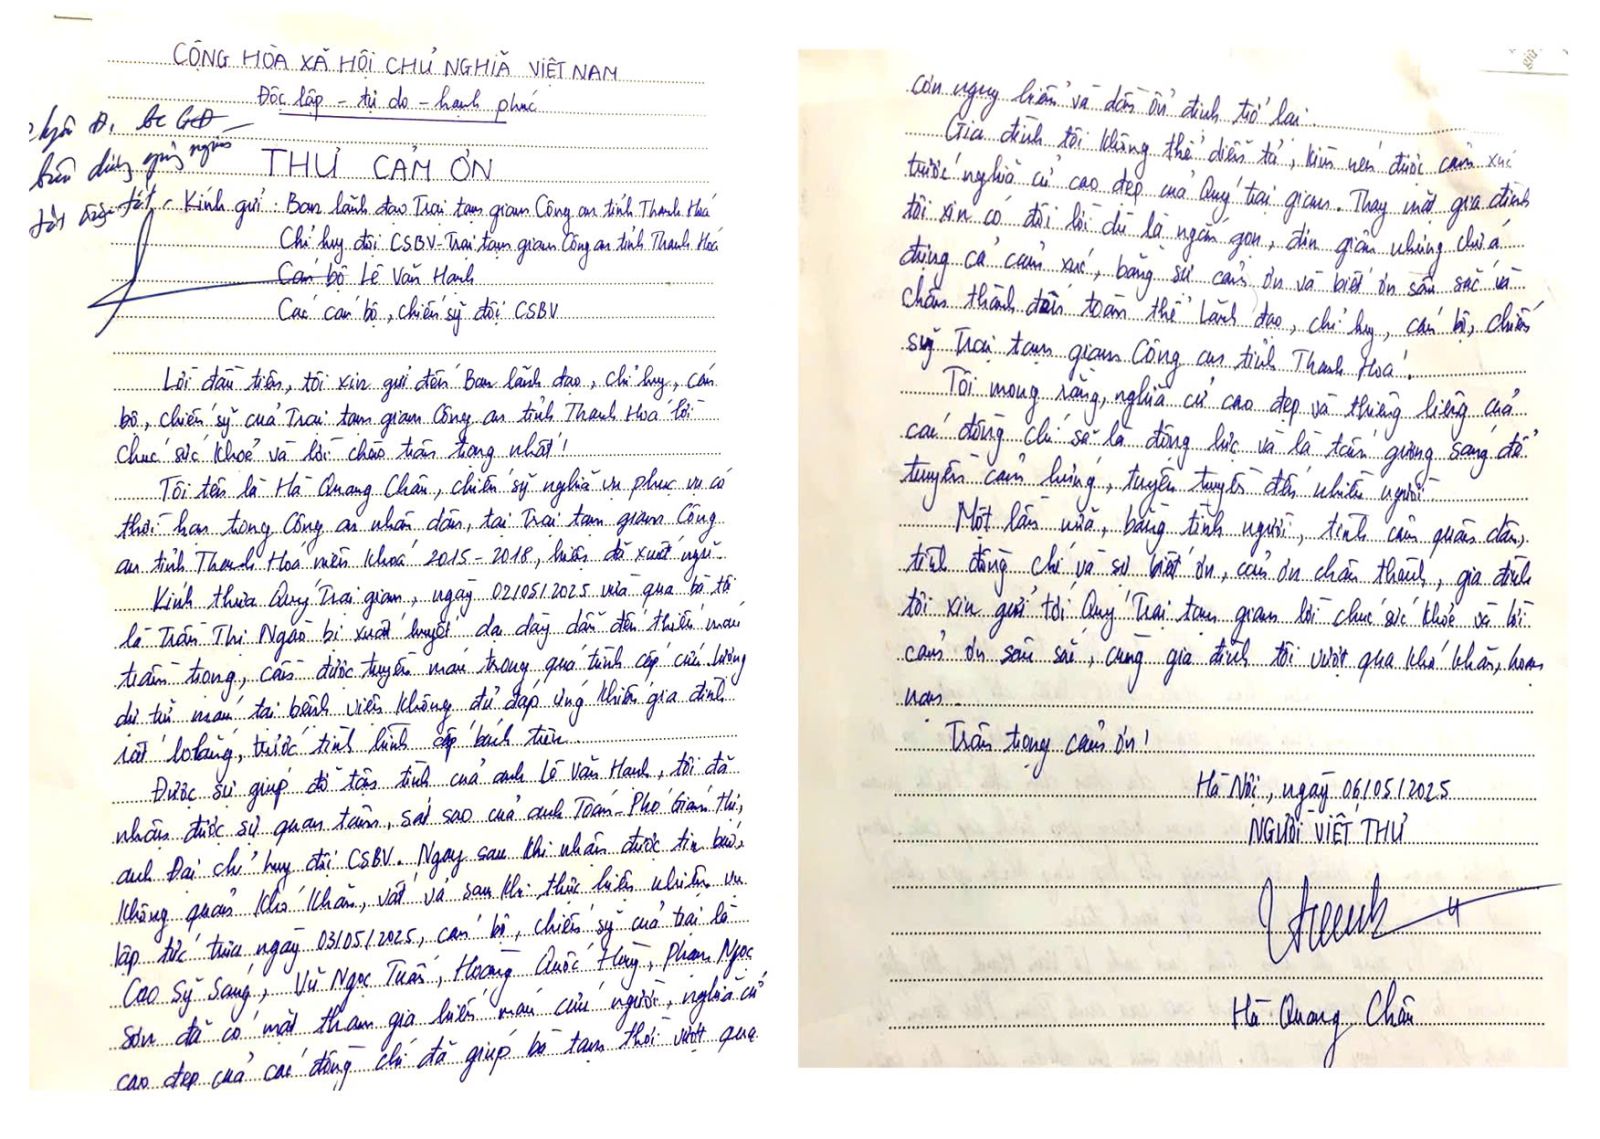 CỘNG HÒA XÃ HỘI CHỦ NGHĨA VIỆT NAM
Độc lập - tự do - hạnh phúc
THƯ CẢM ƠN
Kính gửi: Ban lãnh đạo Trại tạm giam Công an tỉnh Thanh Hoá
Chỉ huy đội CSBV - Trại tạm giam Công an tỉnh Thanh Hoá
Cán bộ Lê Văn Hanh
Các cán bộ, chiến sỹ đội CSBV
Lời đầu tiên, tôi xin gửi đến Ban lãnh đạo, chỉ huy, cán
bộ, chiến sỹ của Trại tạm giam Công an tỉnh Thanh Hoá lời
chúc sức khoẻ và lời chào trân trọng nhất!
Tôi tên là Hà Quang Chân, chiến sỹ nghĩa vụ phục vụ có
thời hạn trong Công an nhân dân, tại Trại tạm giam Công
an tỉnh Thanh Hoá niên khoá 2015 - 2018, hiện đã xuất ngũ.
Kính thưa Quý Trại giam, ngày 02/05/2025 vừa qua bà tôi
là Trần Thị Ngão bị xuất huyết dạ dày dẫn đến thiếu máu
trầm trọng, cần được truyền máu trong quá trình cấp cứu, lượng
dự trữ máu tại bệnh viện không đủ đáp ứng khiến gia đình
rất lo lắng, trước tình hình cấp bách trên.
Được sự giúp đỡ tận tình của anh Lê Văn Hanh, tôi đã
nhận được sự quan tâm, sát sao của anh Toán - Phó Giám thị,
anh Đại chỉ huy đội CSBV. Ngay sau khi nhận được tin báo,
không quản khó khăn, vất vả sau khi thực hiện nhiệm vụ
lập tức trưa ngày 03/05/2025, cán bộ, chiến sỹ của trại là
Cao Sỹ Sáng, Vũ Ngọc Tuấn, Hoàng Quốc Hùng, Phạm Ngọc
Sơn đã có mặt tham gia hiến máu cứu người, nghĩa cử
cao đẹp của các đồng chí đã giúp bà tạm thời vượt qua
cơn nguy hiểm và dần ổn định trở lại.
Gia đình tôi không thể diễn tả, kìm nén được cảm xúc
trước nghĩa cử cao đẹp của Quý trại giam. Thay mặt gia đình
tôi xin có đôi lời dù là ngắn gọn, đơn giản nhưng chứa
đựng cả cảm xúc, bằng sự cảm ơn và biết ơn sâu sắc và
chân thành đến toàn thể Lãnh đạo, chỉ huy, cán bộ, chiến
sỹ Trại tạm giam Công an tỉnh Thanh Hoá!
Tôi mong rằng, nghĩa cử cao đẹp và thiêng liêng của
các đồng chí sẽ là động lực và là tấm gương sáng để
truyền cảm hứng, tuyên truyền đến nhiều người.
Một lần nữa, bằng tình người, tình cảm quân dân,
tình đồng chí và sự biết ơn, cảm ơn chân thành, gia đình
tôi xin gửi tới Quý Trại tạm giam lời chúc sức khoẻ và lời
cảm ơn sâu sắc, cùng gia đình tôi vượt qua khó khăn, hoạn
nạn.
Trân trọng cảm ơn!
Hà Nội, ngày 06/05/2025
NGƯỜI VIẾT THƯ
Hà Quang Chân